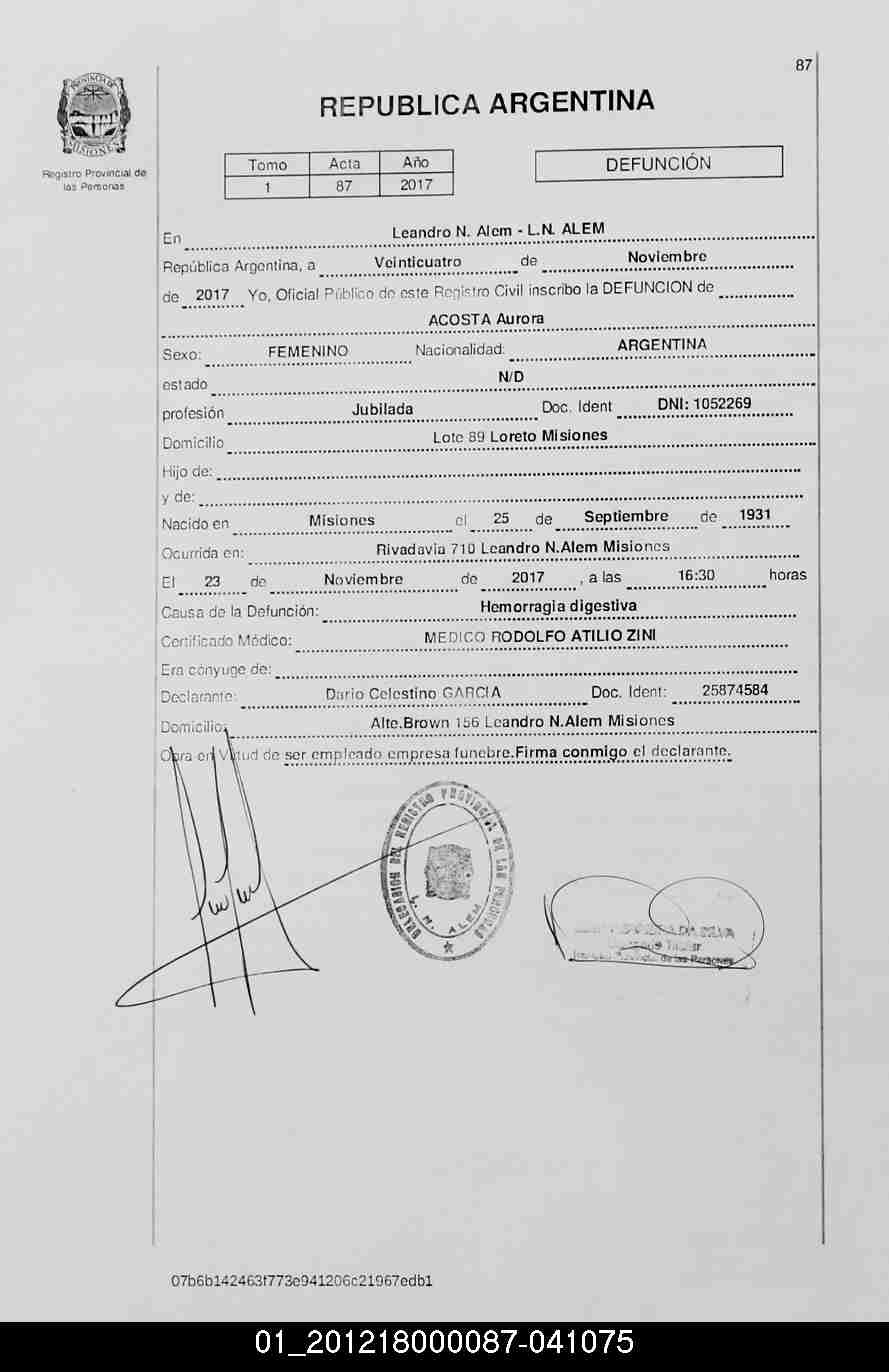 87
PROVINCIA DE
MISIONES
Registro Provincial de
las Personas
REPUBLICA ARGENTINA
Tomo Acta Año
1 87 2017
DEFUNCIÓN
En Leandro N. Alem - L.N. ALEM
República Argentina, a Veinticuatro de Noviembre
de 2017 Yo, Oficial Público de este Registro Civil inscribo la DEFUNCION de
ACOSTA Aurora
Sexo: FEMENINO Nacionalidad: ARGENTINA
estado N/D
profesión Jubilada Doc. Ident DNI: 1052269
Domicilio Lote 89 Loreto Misiones
Hijo de:
y de:
Nacido en Misiones el 25 de Septiembre de 1931
Ocurrida en: Rivadavia 710 Leandro N.Alem Misiones
El 23 de Noviembre de 2017 , a las 16:30 horas
Causa de la Defunción: Hemorragia digestiva
Certificado Médico: MEDICO RODOLFO ATILIO ZINI
Era cónyuge de:
Declarante: Dario Celestino GARCIA Doc. Ident: 25874584
Domicilio: Alte.Brown 156 Leandro N.Alem Misiones
Obra en Virtud de ser empleado empresa funebre.Firma conmigo el declarante.
DEL REGISTRO PROVINCIAL DE LAS PERSONAS
L. N. ALEM
DA SILVA
Titular
de las Personas
07b6b142463f773e941206c21967edb1
01_201218000087-041075